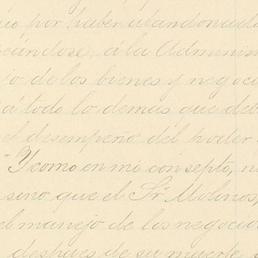 por haber abandonado
á la Adminis
de los bienes y negoci
á todo lo demas que deb
el desempeño del poder
"Y como en mi concepto, n
sino que el Sr. Molinos,
el manejo de los negocios
despues de su muerte